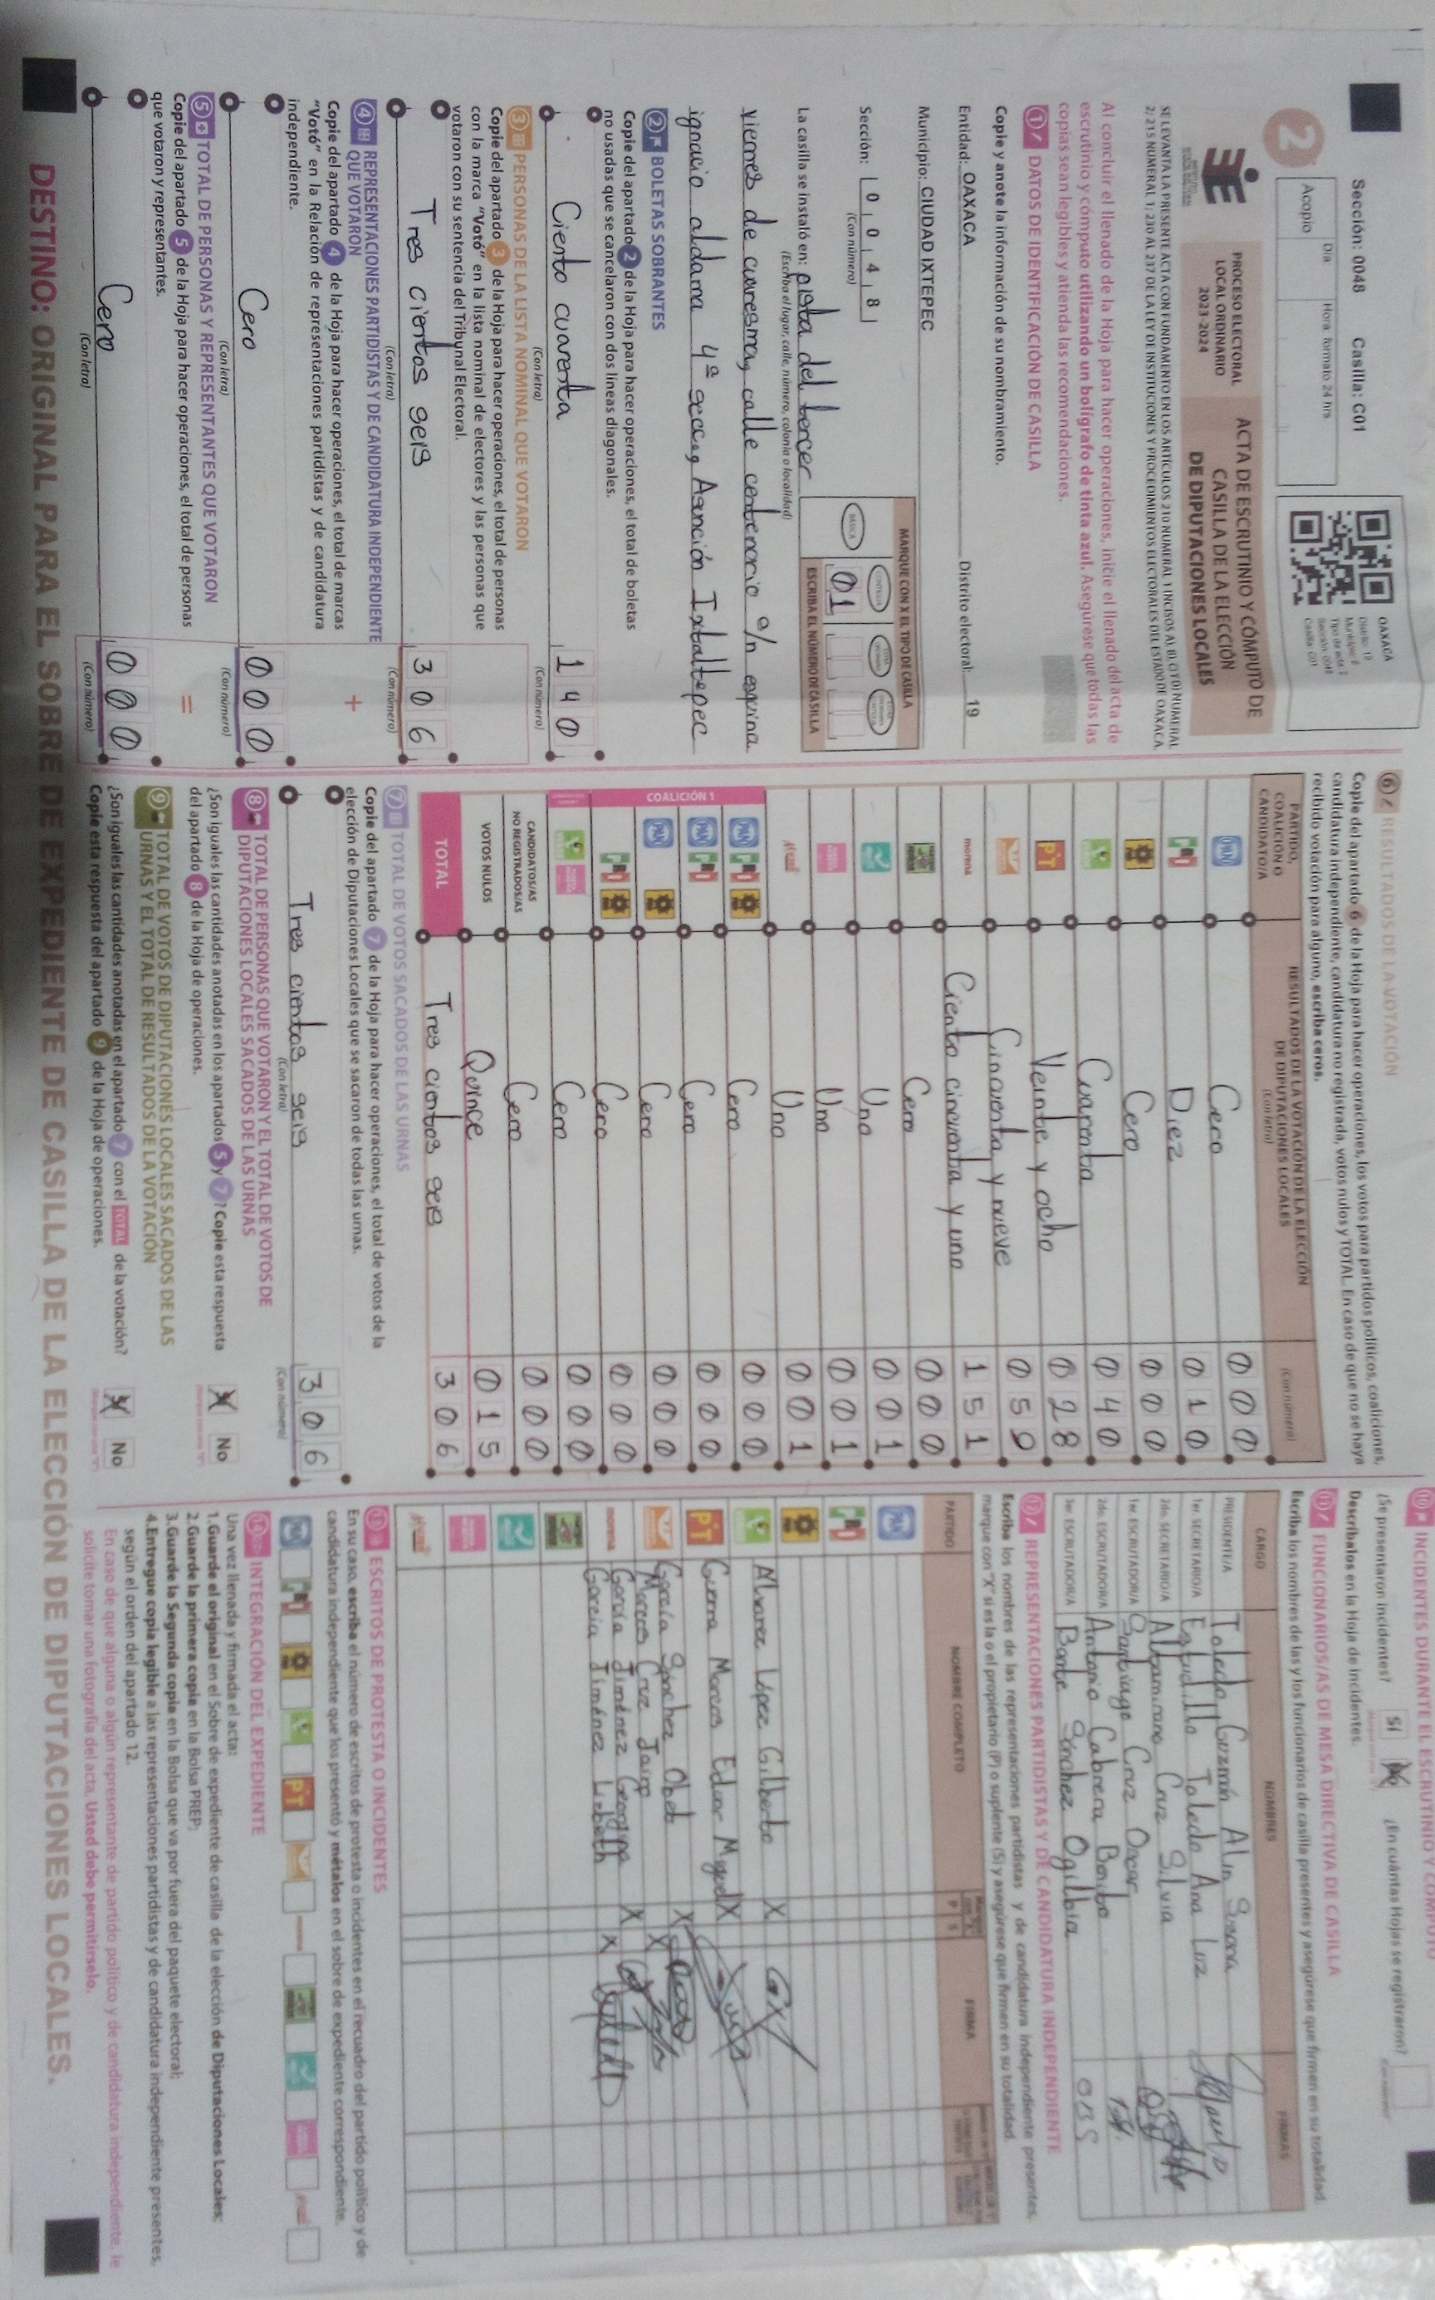 Sección: 0048 Casilla: C01
Día Hora: formato 24 hrs
Acopio
OAXACA
2
PROCESO ELECTORAL
LOCAL ORDINARIO
2023-2024
ACTA DE ESCRUTINIO Y CÓMPUTO DE
CASILLA DE LA ELECCIÓN
DE DIPUTACIONES LOCALES
Al concluir el llenado de la Hoja para hacer operaciones, inicie el llenado del acta de
escrutinio y cómputo utilizando un bolígrafo de tinta azul. Asegúrese que todas las
copias sean legibles y atienda las recomendaciones.
1 DATOS DE IDENTIFICACIÓN DE CASILLA
Copie y anote la información de su nombramiento.
Entidad: OAXACA Distrito electoral: 19
Municipio: CIUDAD IXTEPEC
Sección: 0 0 4 8
(Con número)
MARQUE CON X EL TIPO DE CASILLA
BÁSICA
01
ESCRIBA EL NÚMERO DE CASILLA
La casilla se instaló en: pista del tercer
(Escriba el lugar, calle, número, colonia o localidad)
viernes de cuaresma, calle centenario s/n esquina
ignacio aldama 4ª secc., Asunción Ixtaltepec
2 BOLETAS SOBRANTES
Copie del apartado 2 de la Hoja para hacer operaciones, el total de boletas
no usadas que se cancelaron con dos líneas diagonales.
Ciento cuarenta 1 4 0
(Con letra) (Con número)
3 PERSONAS DE LA LISTA NOMINAL QUE VOTARON
Copie del apartado 3 de la Hoja para hacer operaciones, el total de personas
con la marca "Votó" en la lista nominal de electores y las personas que
votaron con su sentencia del Tribunal Electoral.
Tres cientos seis 3 0 6
(Con letra) (Con número)
4 REPRESENTACIONES PARTIDISTAS Y DE CANDIDATURA INDEPENDIENTE
QUE VOTARON
Copie del apartado 4 de la Hoja para hacer operaciones, el total de marcas
"Votó" en la Relación de representaciones partidistas y de candidatura
independiente.
+
Cero 0 0 0
(Con letra) (Con número)
5 TOTAL DE PERSONAS Y REPRESENTANTES QUE VOTARON
Copie del apartado 5 de la Hoja para hacer operaciones, el total de personas
que votaron y representantes.
=
Cero 0 0 0
(Con letra) (Con número)
6 RESULTADOS DE LA VOTACIÓN
Copie del apartado 6 de la Hoja para hacer operaciones, los votos para partidos políticos, coaliciones,
candidatura independiente, candidatura no registrada, votos nulos y TOTAL. En caso de que no se haya
recibido votación para alguno, escriba ceros.
PARTIDO,
COALICIÓN O
CANDIDATO/A
RESULTADOS DE LA VOTACIÓN DE LA ELECCIÓN
DE DIPUTACIONES LOCALES
(Con letra) (Con número)
PAN Cero 0 0 0
PRI Diez 0 1 0
Cero 0 0 0
Cuarenta 0 4 0
PT Veinte y ocho 0 2 8
Cincuenta y nueve 0 5 9
morena Ciento cincuenta y uno 1 5 1
Cero 0 0 0
Uno 0 0 1
Uno 0 0 1
Uno 0 0 1
COALICIÓN 1
Cero 0 0 0
Cero 0 0 0
Cero 0 0 0
Cero 0 0 0
Cero 0 0 0
CANDIDATOS/AS
NO REGISTRADOS/AS Cero 0 0 0
VOTOS NULOS Quince 0 1 5
TOTAL Tres cientos seis 3 0 6
7 TOTAL DE VOTOS SACADOS DE LAS URNAS
Copie del apartado 7 de la Hoja para hacer operaciones, el total de votos de la
elección de Diputaciones Locales que se sacaron de todas las urnas.
Tres cientos seis 3 0 6
(Con letra) (Con número)
8 TOTAL DE PERSONAS QUE VOTARON Y EL TOTAL DE VOTOS DE
DIPUTACIONES LOCALES SACADOS DE LAS URNAS
¿Son iguales las cantidades anotadas en los apartados 5 y 7? Copie esta respuesta
del apartado 8 de la Hoja de operaciones.
X No
9 TOTAL DE VOTOS DE DIPUTACIONES LOCALES SACADOS DE LAS
URNAS Y EL TOTAL DE RESULTADOS DE LA VOTACIÓN
¿Son iguales las cantidades anotadas en el apartado 7 con el TOTAL de la votación?
Copie esta respuesta del apartado 9 de la Hoja de operaciones.
X No
10 INCIDENTES DURANTE EL ESCRUTINIO Y CÓMPUTO
¿Se presentaron incidentes? Sí ¿En cuántas Hojas se registraron?
Descríbalos en la Hoja de incidentes.
11 FUNCIONARIOS/AS DE MESA DIRECTIVA DE CASILLA
Escriba los nombres de las y los funcionarios de casilla presentes y asegúrese que firmen en su totalidad
CARGO NOMBRES FIRMAS
PRESIDENTE/A Toledo Guzmán Alin
1er. SECRETARIO/A Estudillo Toledo Ana Luz
2do. SECRETARIO/A Altamirano Cruz Silvia
1er. ESCRUTADOR/A Santiago Cruz Oscar
2do. ESCRUTADOR/A Antonio Cabrera Benito
3er. ESCRUTADOR/A Sánchez Ogilbia OBS
12 REPRESENTACIONES PARTIDISTAS Y DE CANDIDATURA INDEPENDIENTE
Escriba los nombres de las representaciones partidistas y de candidatura independiente presentes,
marque con "X" si es la o el propietario (P) o suplente (S) y asegúrese que firmen en su totalidad.
PARTIDO NOMBRE COMPLETO P S FIRMA
Alvarez López Gilberto X
PT Guerra Marcos Eduar Miguel X
García Sánchez Obet X
Marcos Cruz Jairo X
morena García Jiménez Georgina X
García Jiménez Lizbeth X
13 ESCRITOS DE PROTESTA O INCIDENTES
En su caso, escriba el número de escritos de protesta o incidentes en el recuadro del partido político y de
candidatura independiente que los presentó y métalos en el sobre de expediente correspondiente.
14 INTEGRACIÓN DEL EXPEDIENTE
Una vez llenada y firmada el acta:
1.Guarde el original en el Sobre de expediente de casilla de la elección de Diputaciones Locales;
2.Guarde la primera copia en la Bolsa PREP;
3.Guarde la Segunda copia en la Bolsa que va por fuera del paquete electoral;
4.Entregue copia legible a las representaciones partidistas y de candidatura independiente presentes,
según el orden del apartado 12.
En caso de que alguna o algún representante de partido político y de candidatura independiente, le
solicite tomar una fotografía del acta, Usted debe permitírselo.
DESTINO: ORIGINAL PARA EL SOBRE DE EXPEDIENTE DE CASILLA DE LA ELECCIÓN DE DIPUTACIONES LOCALES.